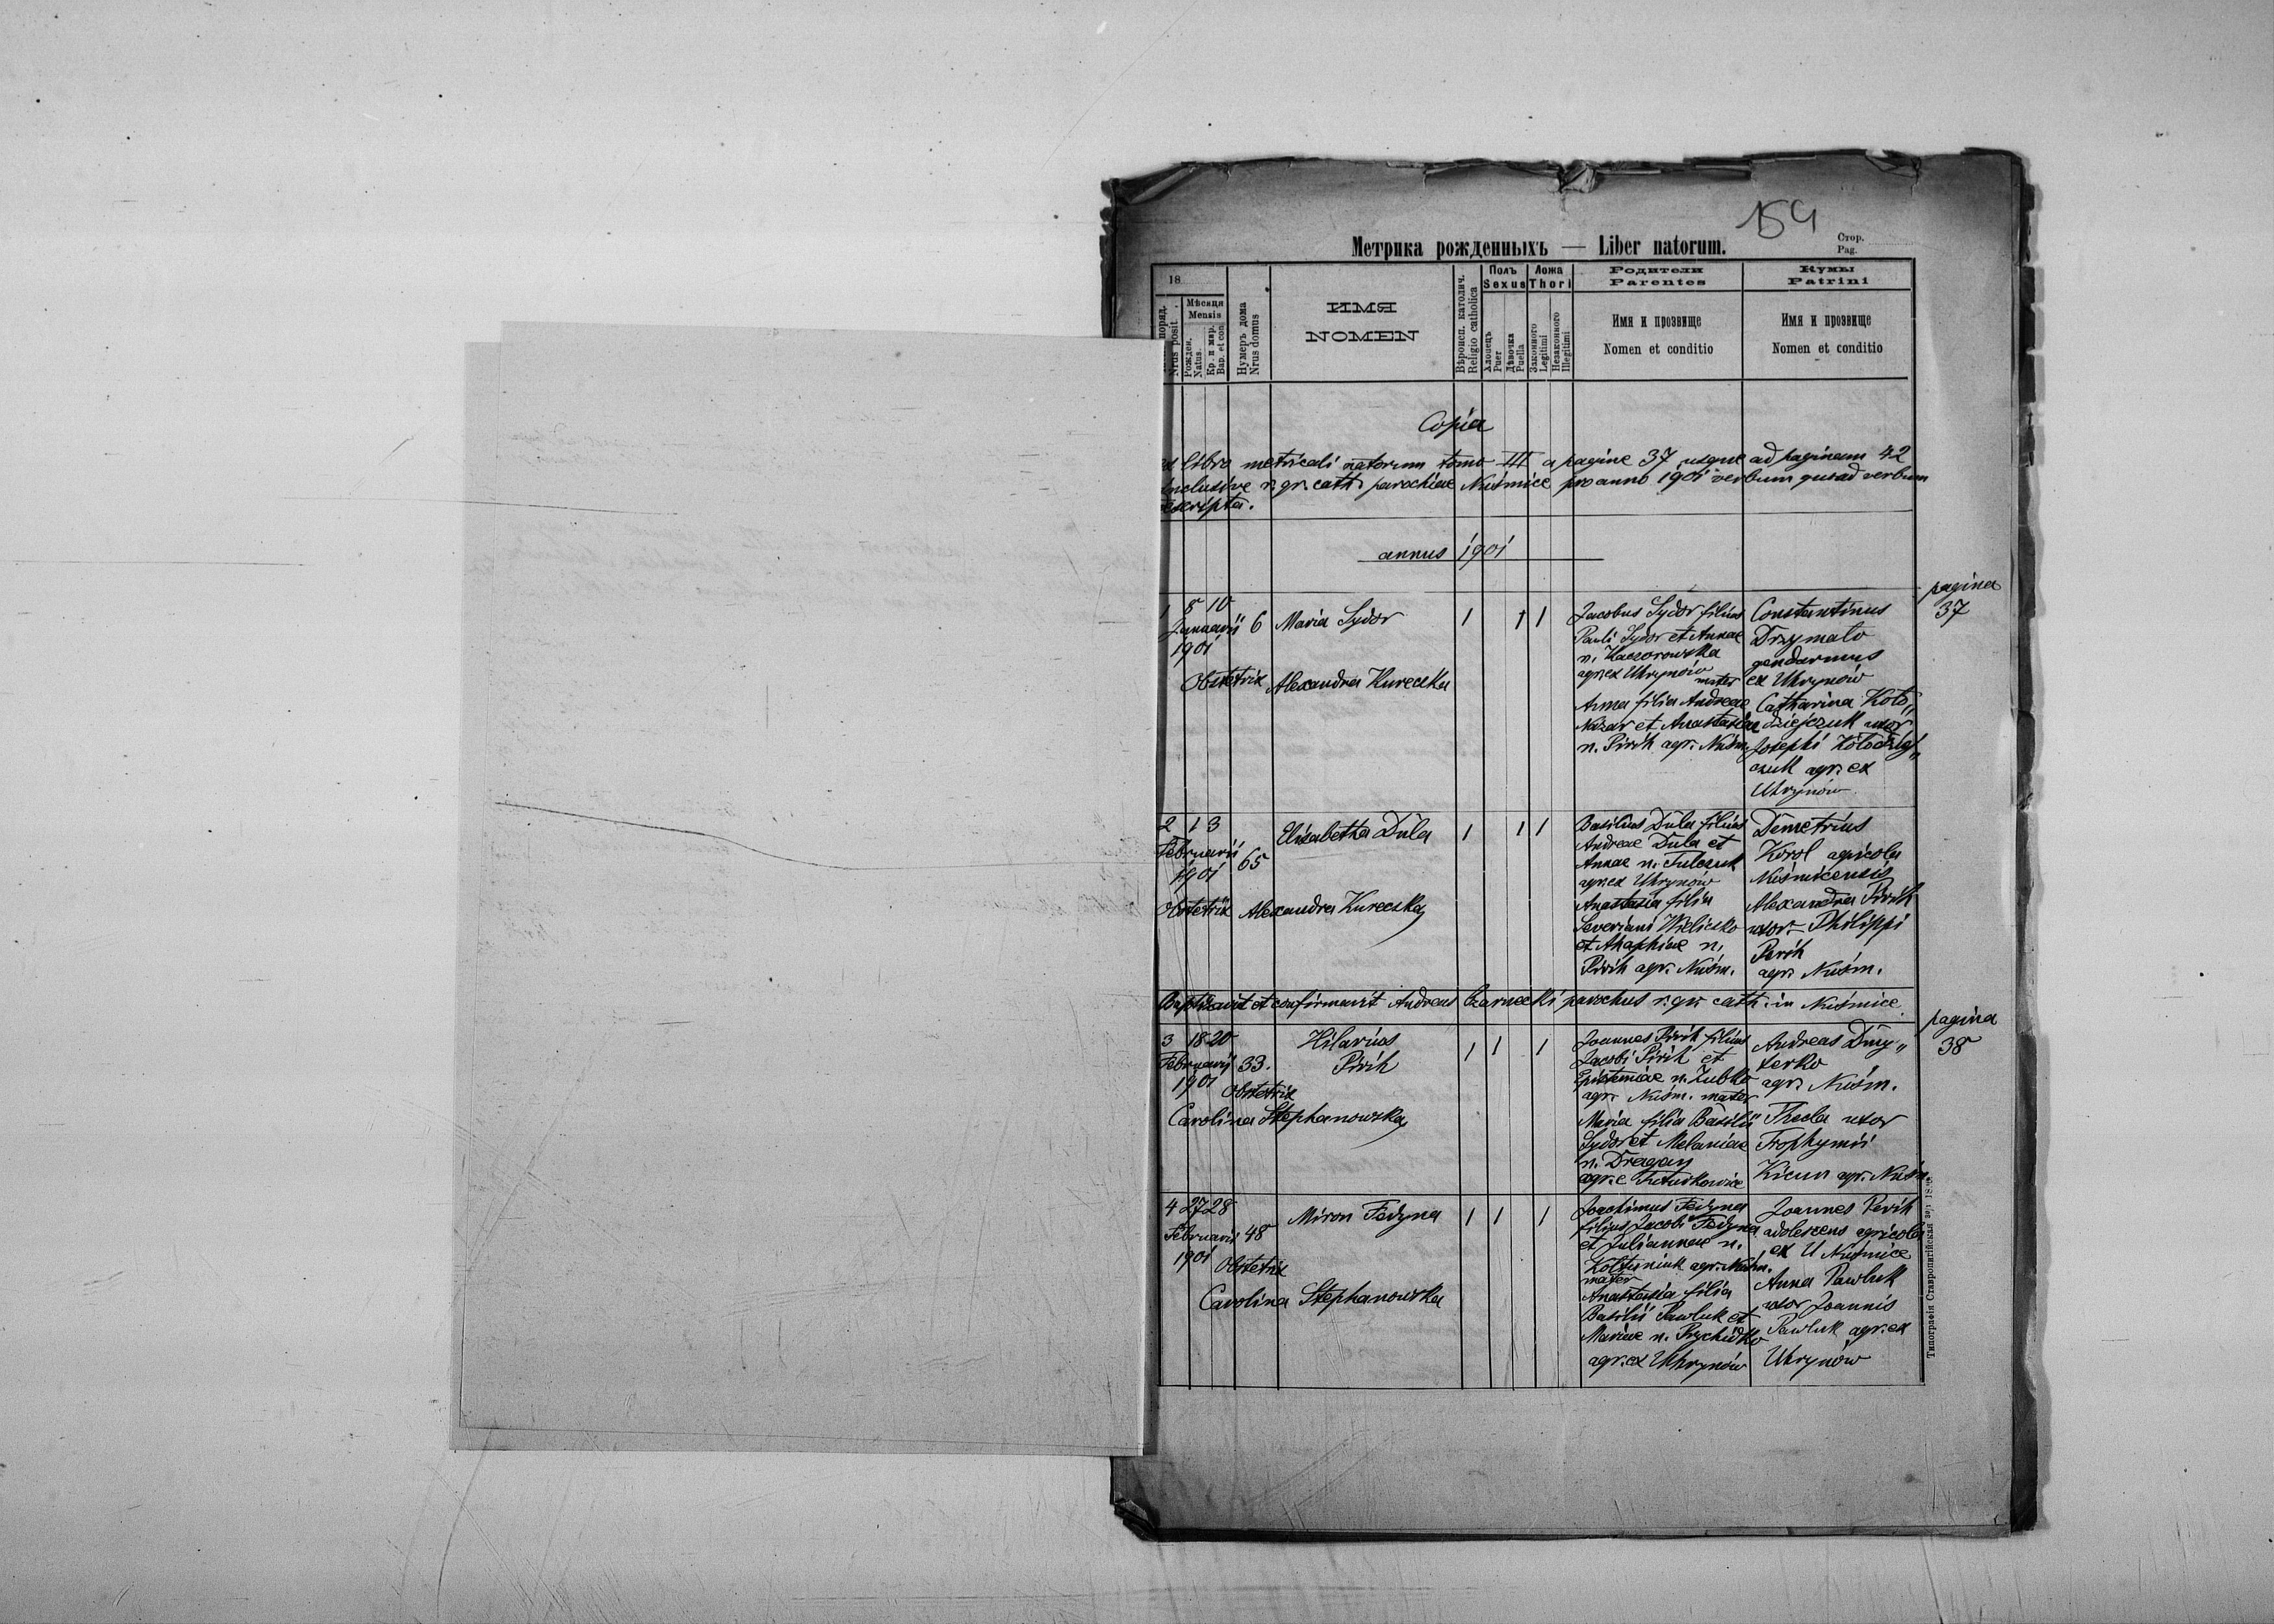 154
Метрика рожденныхъ — Liber natorum.
Стор.
Pag.
18
поряд.
Nrus posit.
Мѣсяця
Mensis
Рожден.
Natus.
Кр. и мир.
Bap. et con
Нумеръ дома
Nrus domus
ИМЯ
NOMEN
Вѣроисп. католич.
Religio catholica
Полъ
Sexus
Хлопецъ
Puer
Дѣвочка
Puella
Ложа
Thori
Законного
Legitimi
Незаконного
Illegitimi
Родители
Parentes
Имя и прозвище
Nomen et conditio
Кумы
Patrini
Имя и прозвище
Nomen et conditio
Copia
ex libro metricali natorum tomo III a pagine 37 usque ad paginam 42
inclusive r. gr. cath. parochiae Nuśmice pro anno 1901 verbum quoad verbum
descripta.
annus 1901
pagina
37
1 8 10
Januarii 6
1901
Maria Sydor
1 1 1
Obstetrix Alexandra Kureczka
Jacobus Sydor filius
Pauli Sydor et Annae
n. Kaczorowska
agr. ex Uhrynów
mater
Anna filia Andreae
Nazar et Anastasiae
n. Pirih agr. Nuśm.
Constantinus
Drzymało
gendarmus
ex Uhrynów
Catharina Koło„
dziejczuk uxor
Josephi Kołodziej„
czuk agr. ex
Uhrynów
2 1 3
Februarii
1901
65
Elisabetha Dula
1 1 1
Obstetrix Alexandra Kureczka
Basilius Dula filius
Andreae Dula et
Annae n. Fulczuk
agr. ex Uhrynów
Anastasia filia
Severiani Wieliczko
et Ahaphiae n.
Pirih agr. Nuśm.
Demetrius
Korol agricola
Nuśmicensis
Alexandra Pirih
uxor Philippi
Perih
agr. Nuśm.
Baptisavit et confirmavit Andreas Czarnecki parochus r. gr. cath. in Nuśmice
pagina
38
3 18 20
Februarii 33.
1901
Hilarius
Pirih
1 1 1
Obstetrix
Carolina Stephanowska
Joannes Pirih filius
Jacobi Pirih et
n. Zubko
agr. Nuśm. mater
Maria filia Basilii
Sydor et Melaniae
n. Dragan
agr. e Tuturkowice
Andreas Dmy„
terko
agr. Nuśm.
Thecla uxor
Trophymii
Kicun agr. Nuśm.
4 27 28
Februarii 48
1901
Miron Fedyna
1 1 1
Obstetrix
Carolina Stephanowska
Joachimus Fedyna
filius Jacobi Fedyna
et Juliannae n.
Kołtuniuk agr. Nuśm.
mater
Anastasia filia
Basilii Pawluk et
Mariae n. Prychidko
agr. ex Uhrynów
Joannes Perih
adolescens agricola
ex Nuśmice
Anna Pawluk
uxor Joannis
Pawluk agr. ex
Uhrynów
Типографія Ставропигійская